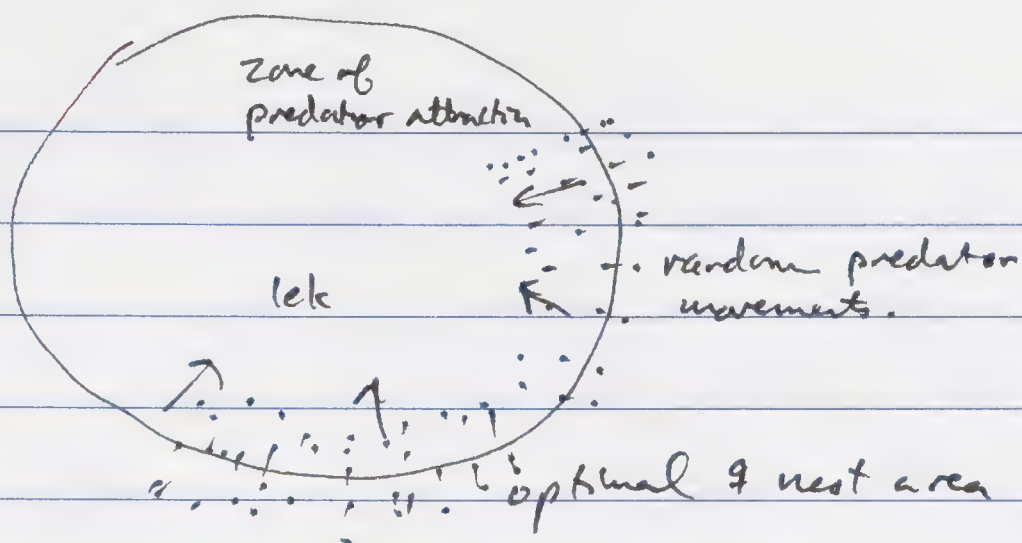 Zone of
predator attraction
lek
random predator
movements.
optimal ♀ nest area